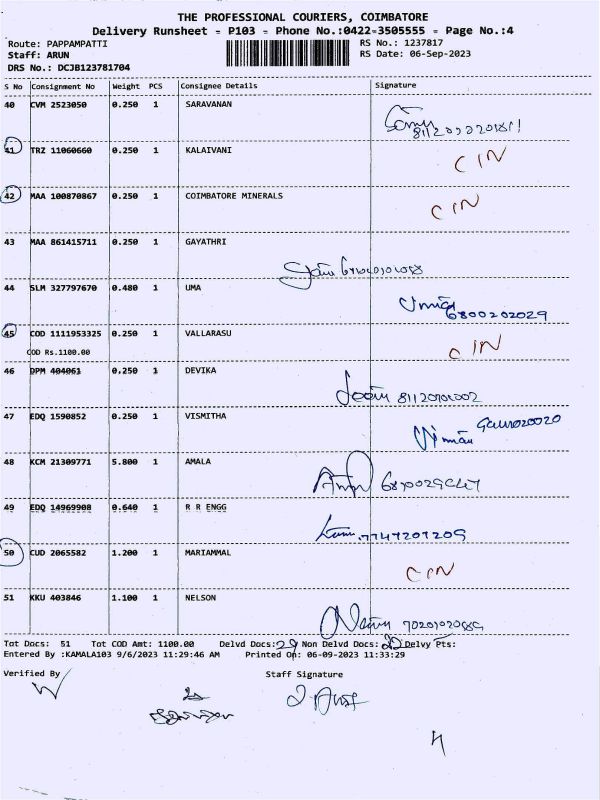 THE PROFESSIONAL COURIERS, COIMBATORE
Delivery Runsheet - P103 - Phone No.:0422-3505555 - Page No.:4
Route: PAPPAMPATTI RS No.: 1237817
Staff: ARUN RS Date: 06-Sep-2023
DRS No.: DCJB123781704
S No Consignment No Weight PCS Consignee Details Signature
40 CVM 2523050 0.250 1 SARAVANAN
41 TRZ 11060660 0.250 1 KALAIVANI CIN
42 MAA 100870867 0.250 1 COIMBATORE MINERALS CIN
43 MAA 861415711 0.250 1 GAYATHRI
44 SLM 327797670 0.480 1 UMA 6800202029
45 COD 1111953325 0.250 1 VALLARASU CIN
COD Rs.1100.00
46 DPM 404061 0.250 1 DEVIKA
47 EDQ 1590852 0.250 1 VISMITHA
48 KCM 21309771 5.800 1 AMALA
49 EDQ 14969908 0.640 1 R R ENGG
50 CUD 2065582 1.200 1 MARIAMMAL CIN
51 KKU 403846 1.100 1 NELSON
Tot Docs: 51 Tot COD Amt: 1100.00 Delvd Docs: Non Delvd Docs: Delvy Pts:
Entered By :KAMALA103 9/6/2023 11:29:46 AM Printed On: 06-09-2023 11:33:29
Verified By Staff Signature